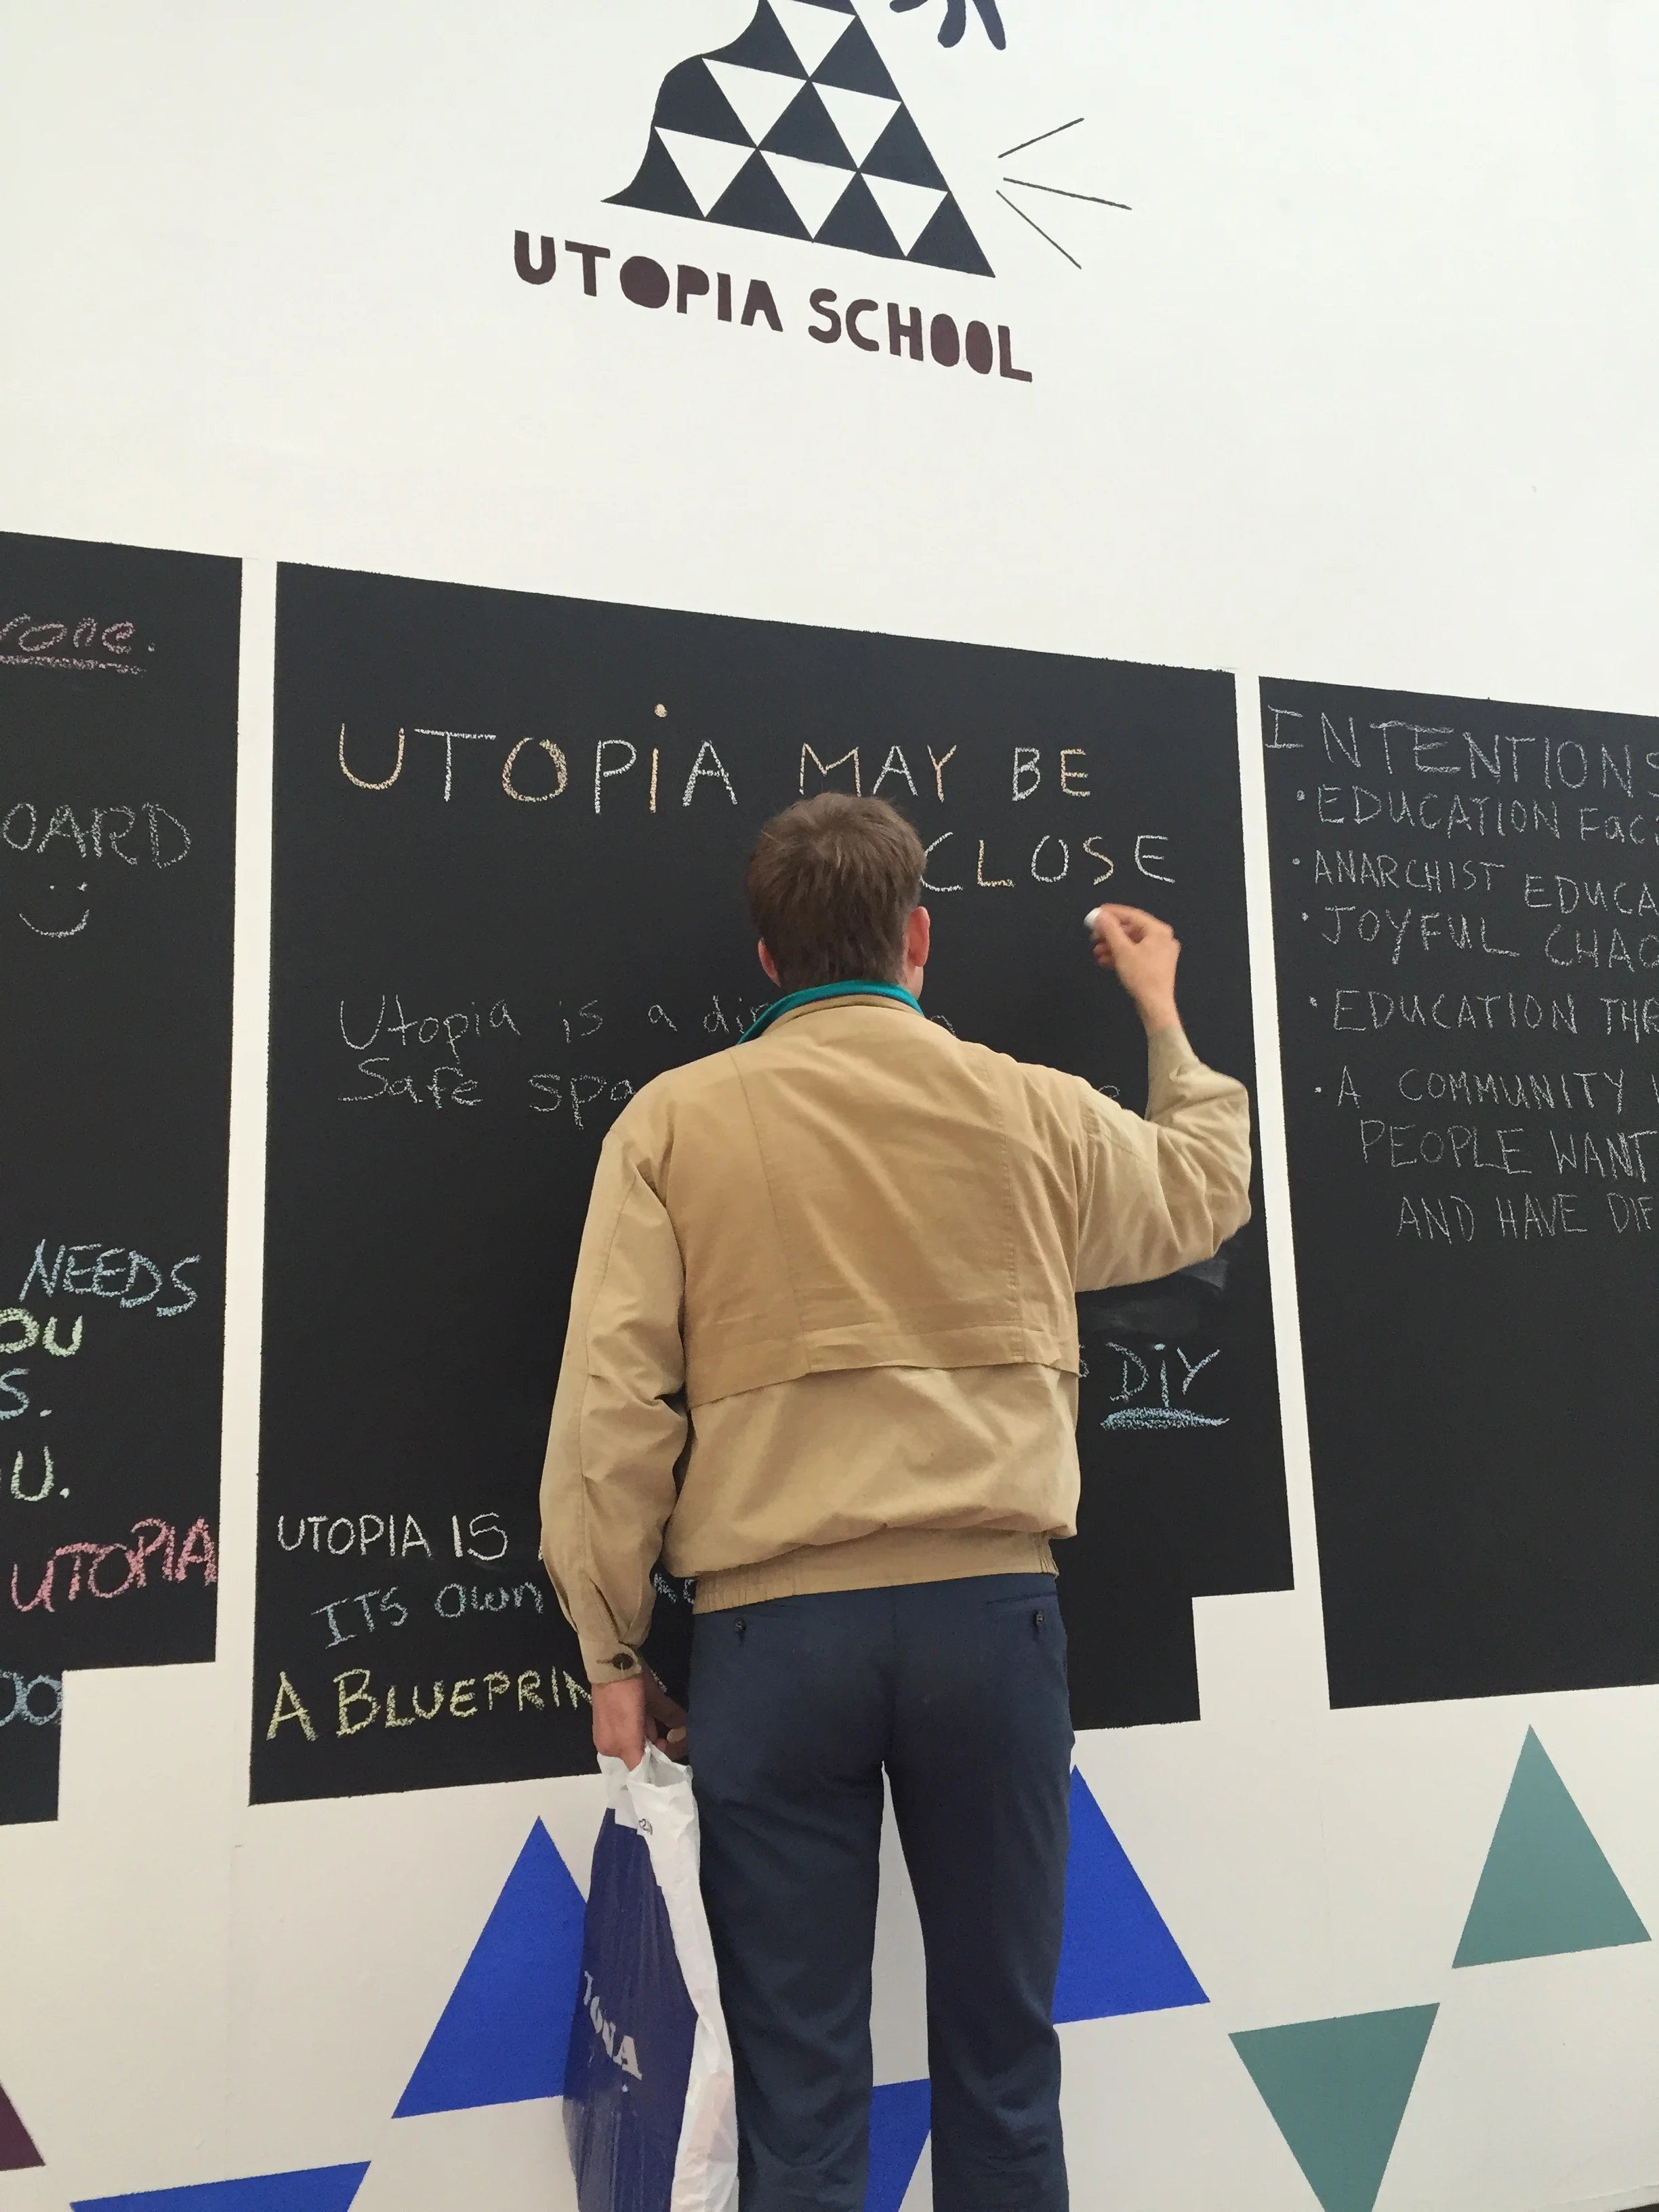 UTOPIA SCHOOL
OARD
NEEDS
OU
S.
U.
UTOPIA
UTOPiA MAY BE
CLOSE
Utopia is a
Safe
DiY
UTOPIA IS
ITS OWN
A BLUEPRIN
INTENTIONS
• EDUCATION FaCi
• ANARCHIST EDUCA
• JOYFUL CHAO
• EDUCATION THR
• A COMMUNITY
PEOPLE WANT
AND HAVE DIF